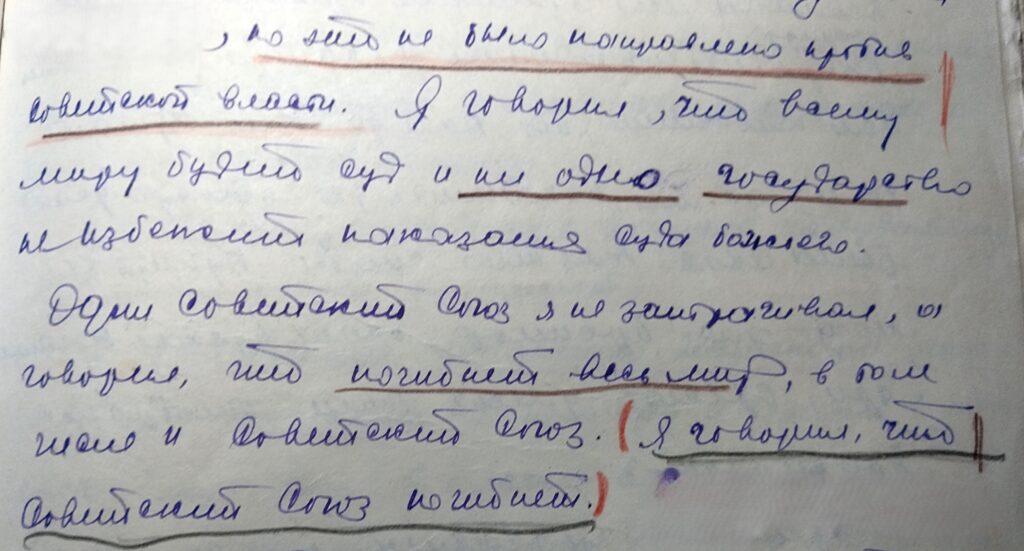 , но это не было направлено против
советской власти. Я говорил, что всему
миру будет суд и ни одно государство
не избежит наказания суда божьего.
Один Советский Союз я не затрагивал, а
говорил, что погибнет весь мир, в том
числе и Советский Союз. (Я говорил, что
Советский Союз погибнет.)